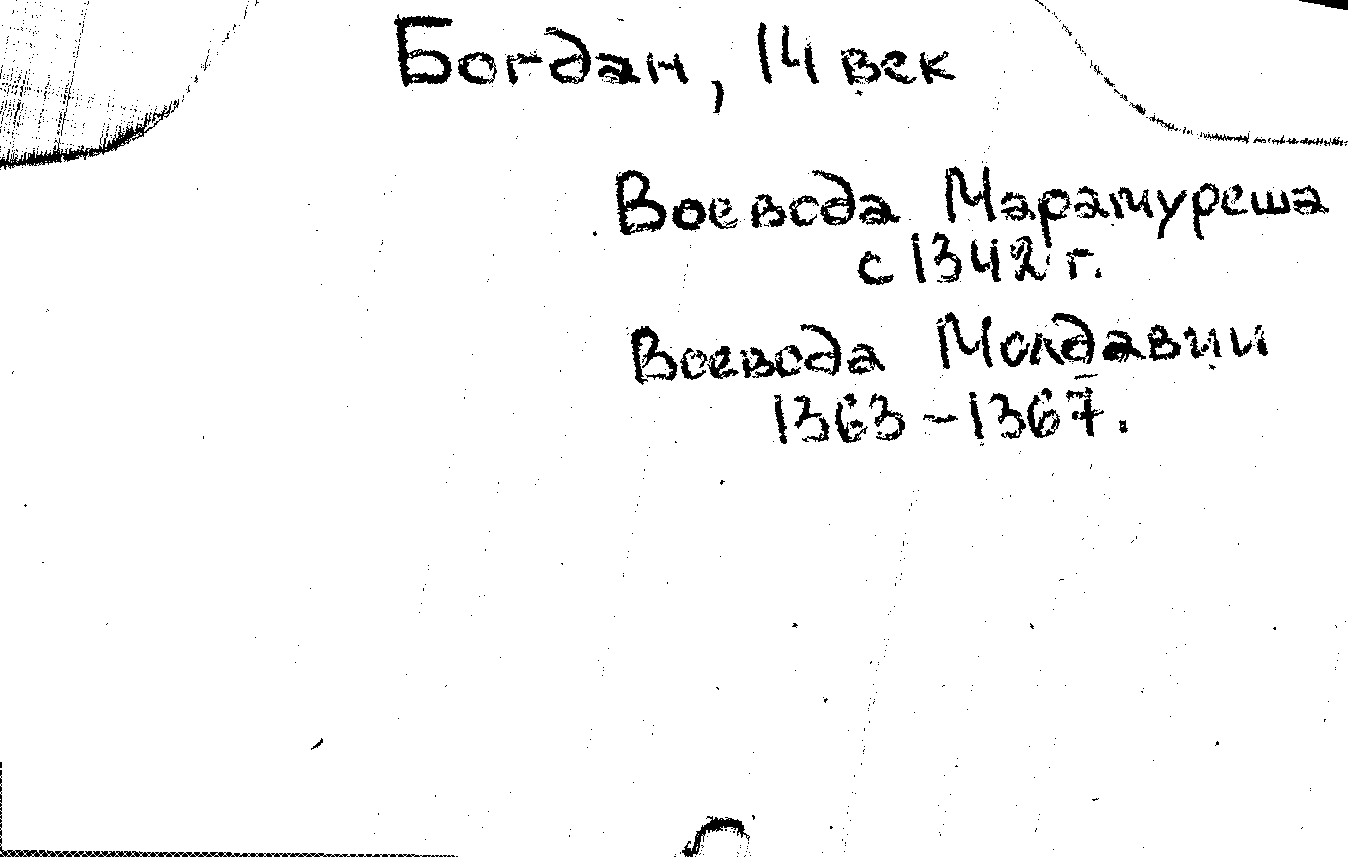 Богдан, 14 век
Воевода Марамуреша
с 1342 г.
Воевода Молдавии
1363-1367.